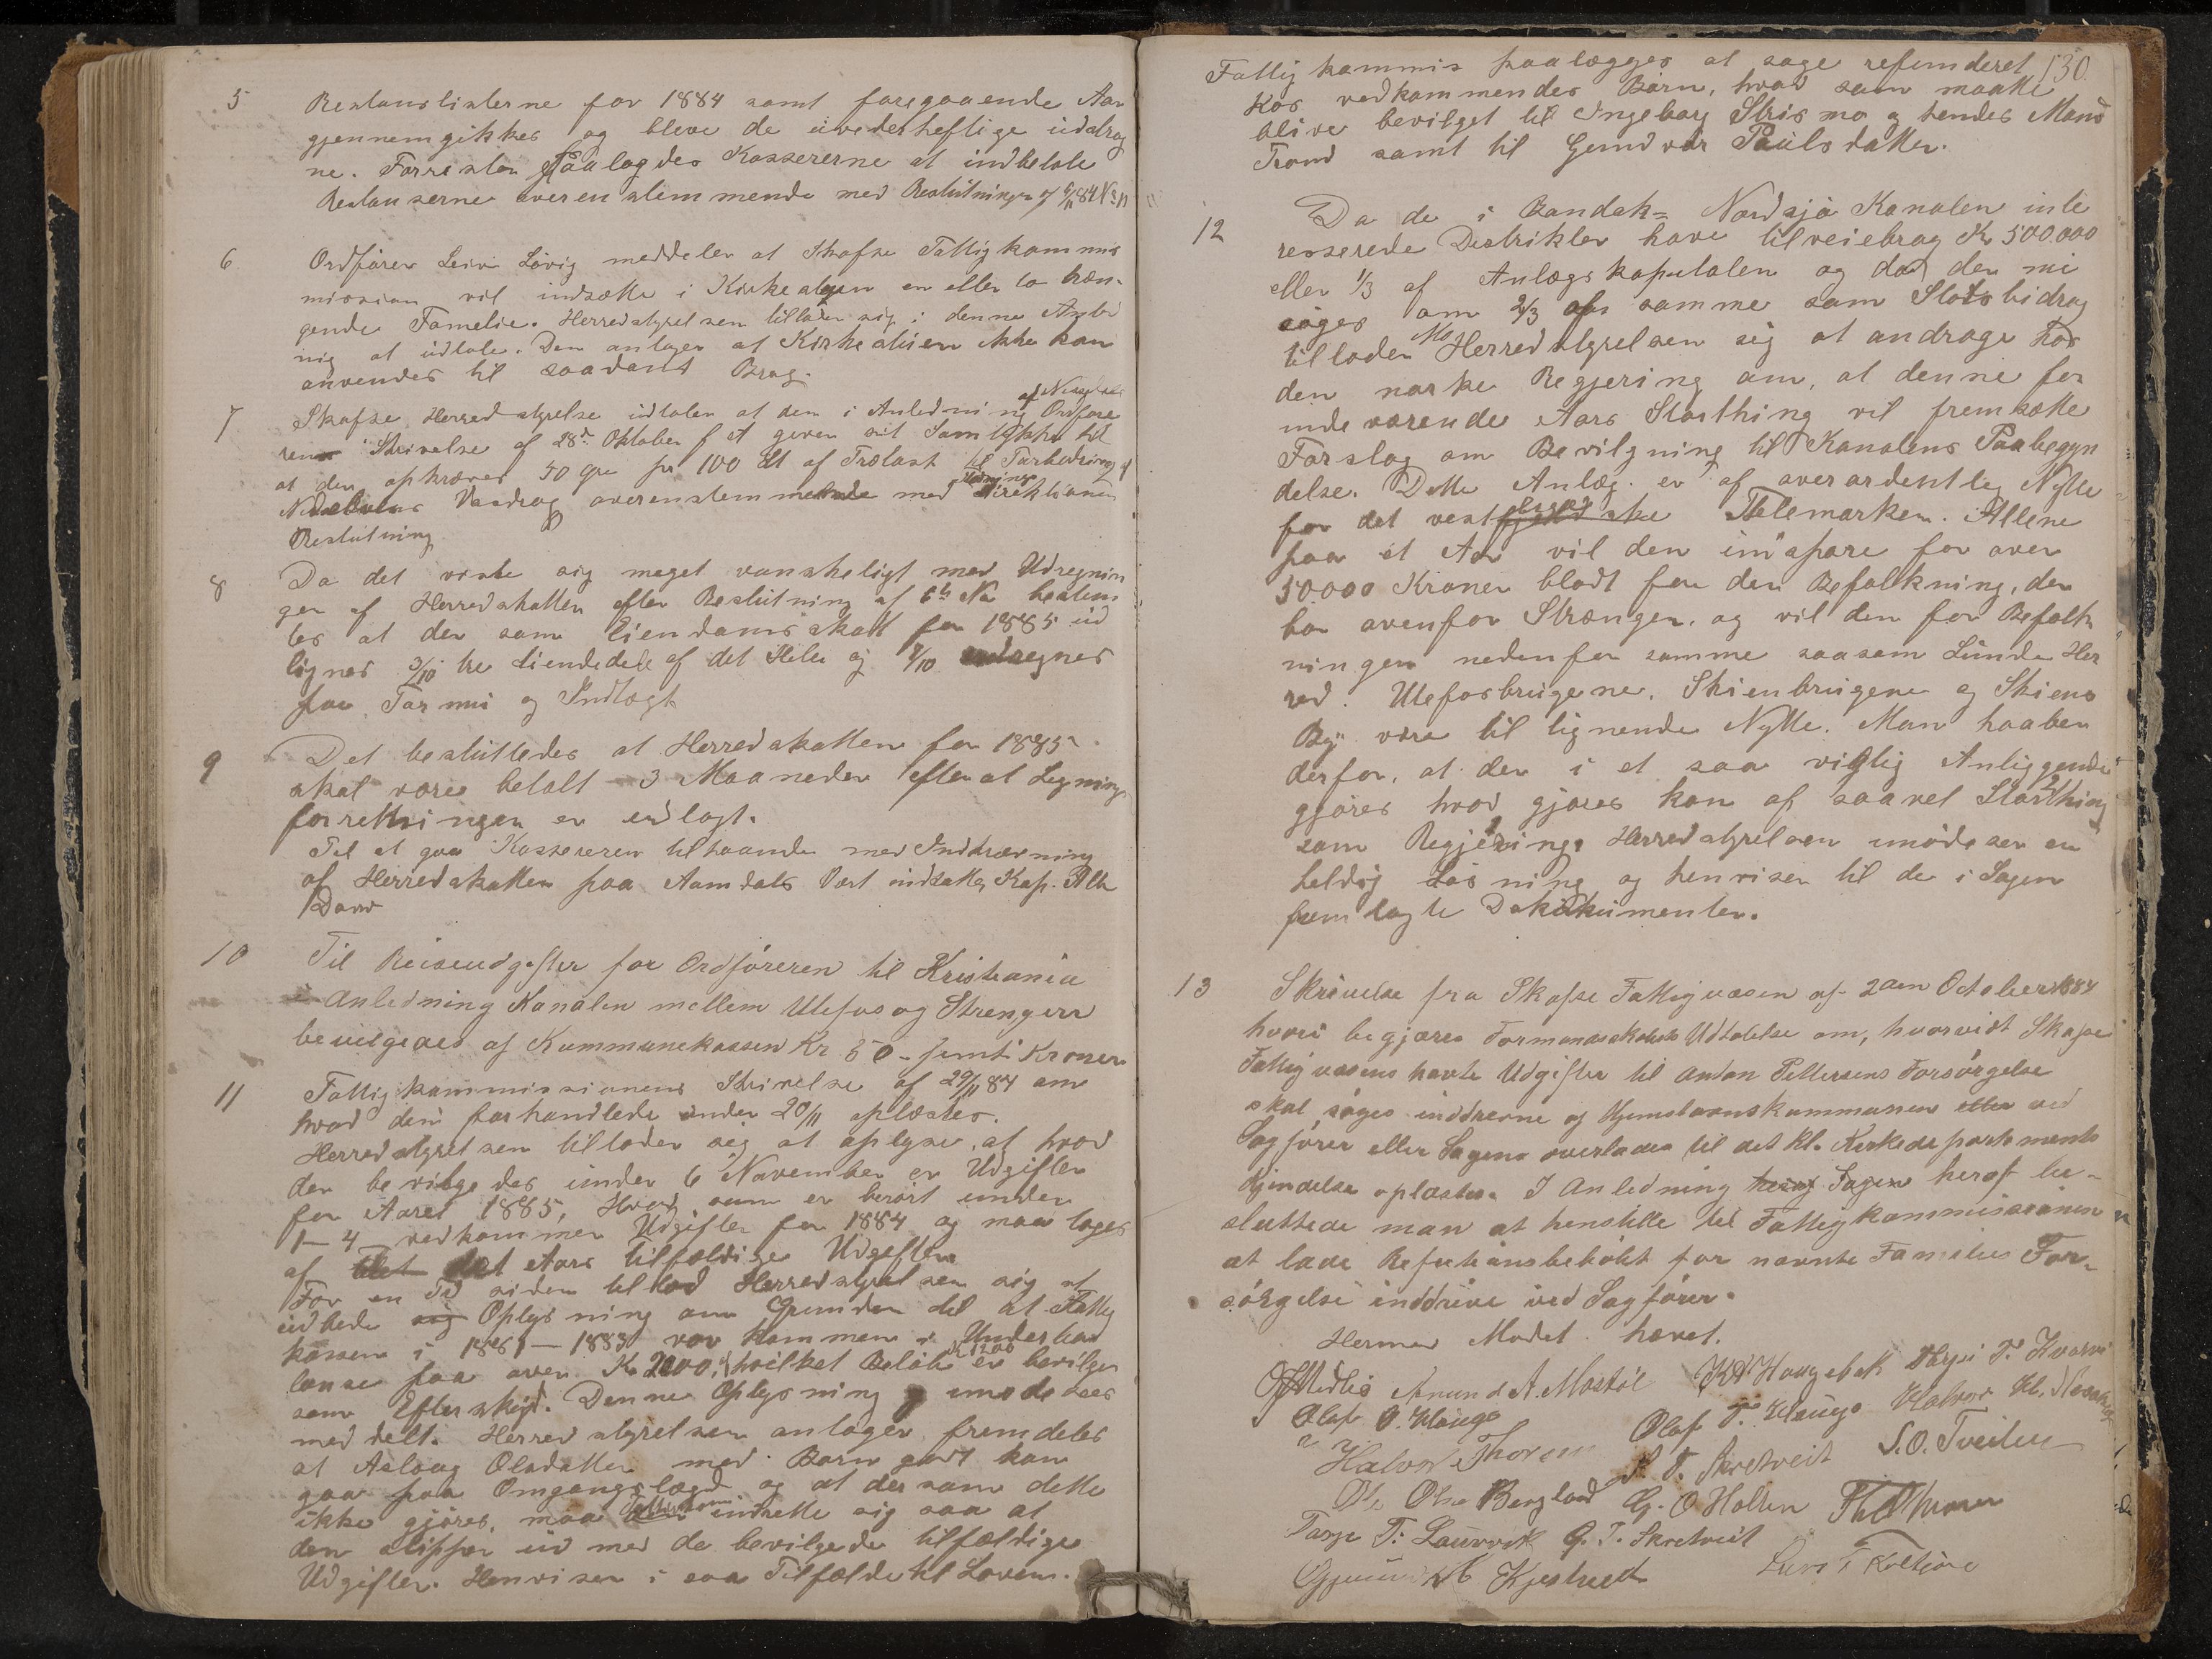 5 Restanslisterne for 1884 samt foregaaende Aar
gjennemgikkes og bleve de uvederheftige uddrag
ne. Forresten Paalagdes Kassererne at indbetale
Restanserne overenstemmende med Beslutningen af 6/11 84 No 11
6 Ordförer Leiv Lövig meddeler at Skafse Fattigkommis
mission vil indsætte i Kirkealuen en eller to træn-
gende Famelie. Herredstyrelsen tillader sig i denne Anled
nig at udtale. Den antager at Kirkestuen ikke kan
anvendes til saadant Brug.
7 Skafse Herredstyrelse udtaler at den i Anledning af Ordföre
rens Skrivelse af 28de Oktober f A giver sit Samtykke til
at der opkræves 50 Öre pr 100 af Trælast til Forbedring af
Vasdrag overenstemmende med Direktionen
Beslutning
8 Da det viste sig meget vanskeligt med Udregnin
gen af Herredskatten efter Beslutning af 6te No bestem
tes at der som Eiendomsskatt for 1885 ud
lignes 3/10 tre tiendedele af det Hele og 7/10 udregnes
paa Formui og Indtægt
9 Det besluttedes at Herredskatten for 1885
skal være betalt 3 Maaneder efter at Ligning
forretningen er udlagt.
Til at gaa Kassereren tilhaande med Inddrævning
af Herredskatten paa Aamdals Værk indsattes Kap. Alb
Daw
10 Til Reiseudgifter for Ordföreren til Kristiania
i Anledning Kanalen mellem Ulefos og Strengen
bevilgedes af Kommunekassen Kr 50 - femti Kroner
11 Fattigkommissionens Skrivelse af 29/11 84 om
hvad den forhandlede under 20/11 oplæstes.
Herredstyrelsen tillader sig at oplyse, at hvad
der bevilgedes under 6 November er Udgifter
for Aaret 1885, Hvad som er berört under
1-4 vedkommer Udgifter for 1884 og maa tages
af det Aars tilfældige Udgifter
For en Tid siden tillod Herredstyrelsen sig at
udbede sig Oplysning om Grunden til at Fattig
kassen i 1881-1883 var kommen i Underbal
lanse paa over Kr 2000, af hvilket Belöb Kr 1200 er bevilget
som Efterskud. Denne Oplysning imödesees
meddelt. Herredstyrelsen antager fremdeles
at Aslaug Olsdatter med Barn godt kan
gaa paa Omgangslægd og at dersom dette
ikke gjöres, maa indrette sig saa at
den slipper ud med de bevilgede tilfældige
Udgifter. Henviser i saa Tilfælde til Loven.
130.
Fattigkommis paalægges at söge refunderet
hos vedkommendes Börn, hvad som maatte
blive bevilget til Ingeborg Strismo og hendes Mand
Trond samt til Gundvor Paulsdatter.
12 Da de i Bandak= Nordsjö Kanalen inte
resserede Distrikter have tilveiebrag Kr 500000
eller 1/3 af Anlægskapitalen og da der nu
söges om 2/3 af samme som Statsbidrag
tillader Mo Herredstyrelsen sig at andrage hos
den norske Regjering om, at denne for
indeværende Aars Storthing vil fremsætte
Forslag om Bevilgning til Kanalens Paabegyn
delse. Dette Anlæg er af overordentleg Nytte
for det vestfjeldske Thelemarken. Allene
paa et Aar vil den inspare for over
50000 Kroner blodt for den Befolkning, der
bor ovenfor Strængen, og vil den for Befolk
ningen nedenfor samme saasom Lunde Her
red. Ulefosbrugene, Skienbrugene og Skiens
By være til lignende Nytte. Man haaber
derfor, at der i et saa vigtig Anliggende
gjöres hvad gjöres kan af saavel Storthing
som Regjering. Herredstyrelsen imödeser en
heldig Lösning og henviser til de i Sagen
fremlagte Dokumenter.
13 Skrivelse fra Skafse Fattigvæsen af 2den October 1884
hvori begjæres Formandskabets Udtalelse om, hvorvidt Skafse
Fattigvæsens havte Udgifter til Anton Pettersens Forsörgelse
skal söges inddrevne af Hjemstavnskommunen eller ved
Sagförer eller Sagens overlades til det Kl. Kirkedepartements
Kjendelse oplæstes. I Anledning Sagen heraf be-
sluttede man at henstille til Fattigkommissionen
at lade Refusionsbelöbet for nævnte Families For-
sörgelse inddrive ved Sagförer.
Hermed Mödet hævet.
OJMidtbö Aanund A. Mostöl KKHaugebak Terjei T. Kvarvi
Olaf O. Klaugo Olaf T. Klaugo Halvor Kl.
Halvor Thoresen P. T. Skretveit S.O. Tveiten
Ole Olsen Bergland G. O Holten
Tarje T. Laurvik G. T. Skretveit
Kjesteit